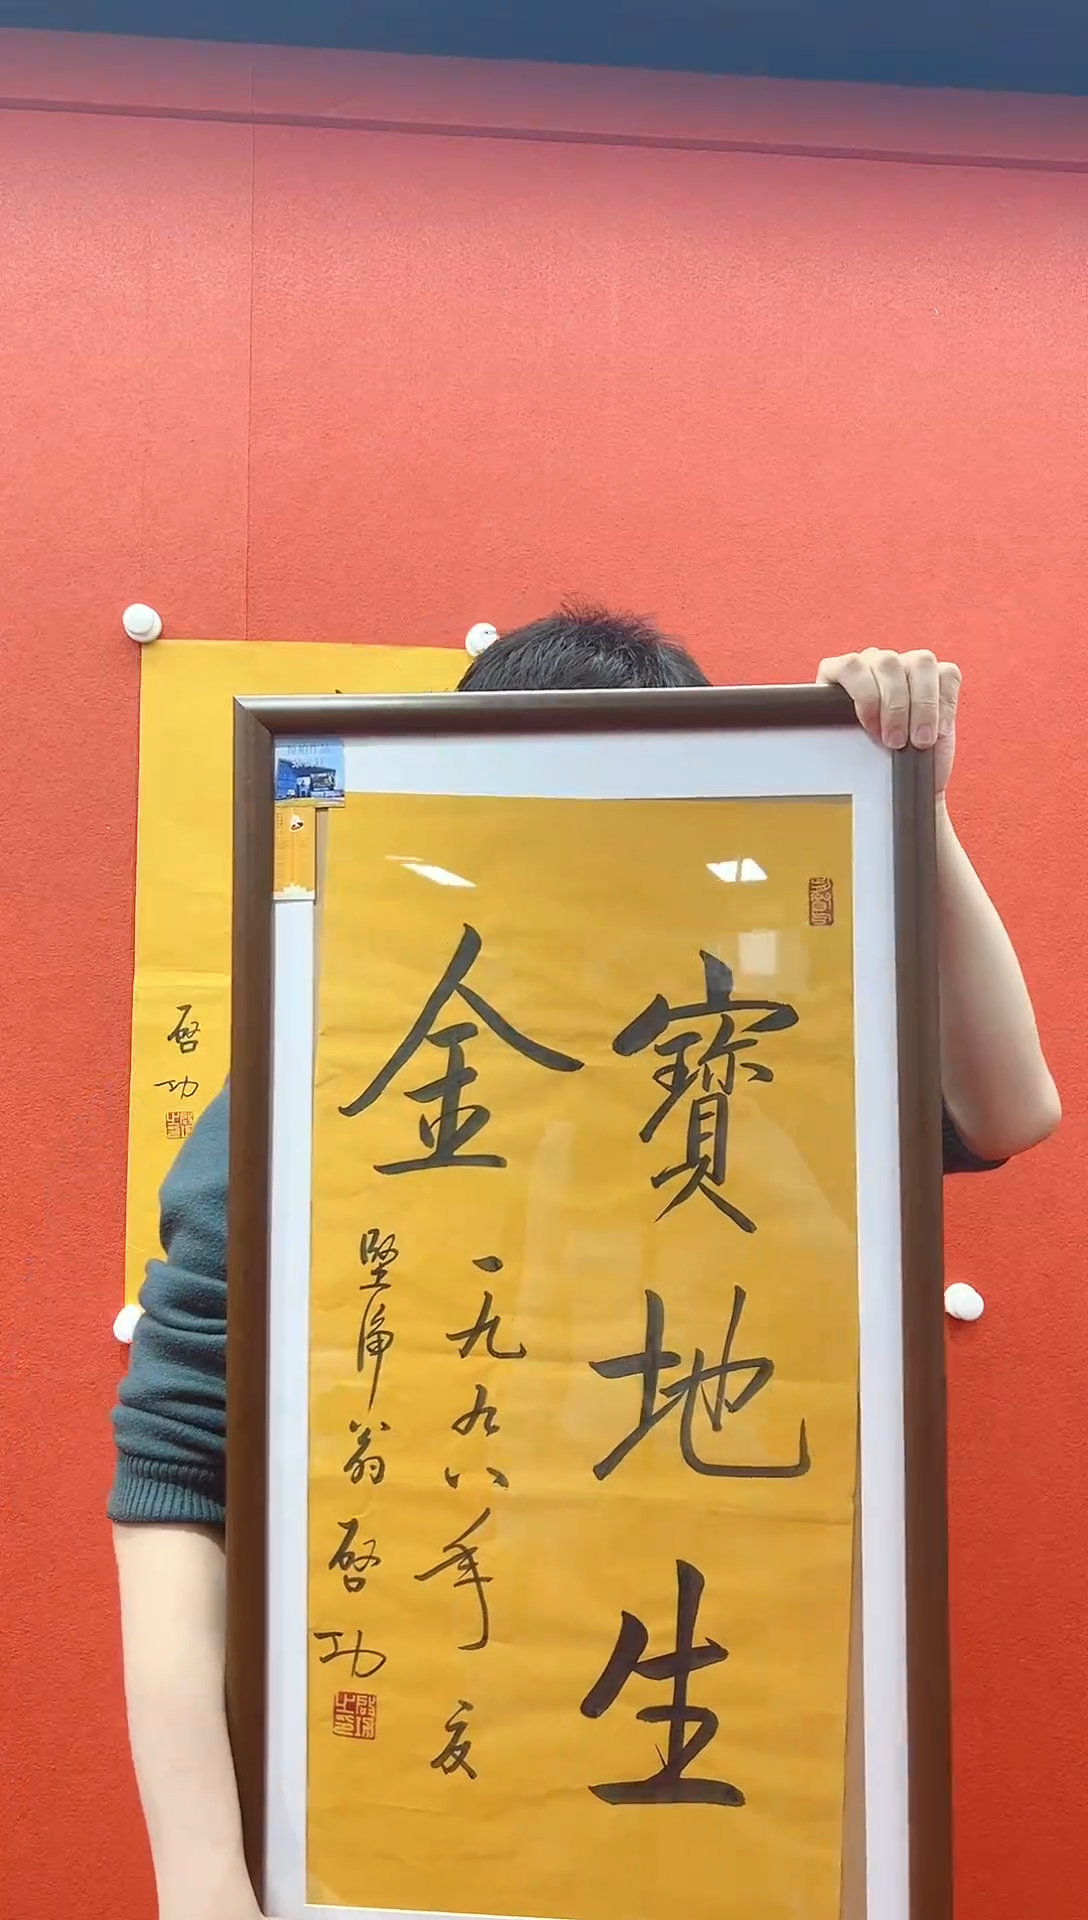 寳地生
金
一九九八年夏
堅浄翁啓功
啓功